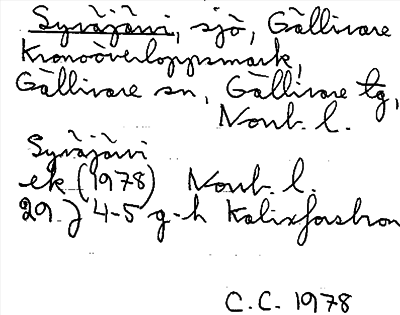 Syväjärvi, sjö, Gällivare
Kronoöverloppsmark,
Gällivare sn, Gällivare tg,
Norrb. l.
Syväjärvi
ek (1978) Norrb. l.
29 J 4-5 g-h Kalixforsbron
C.C. 1978